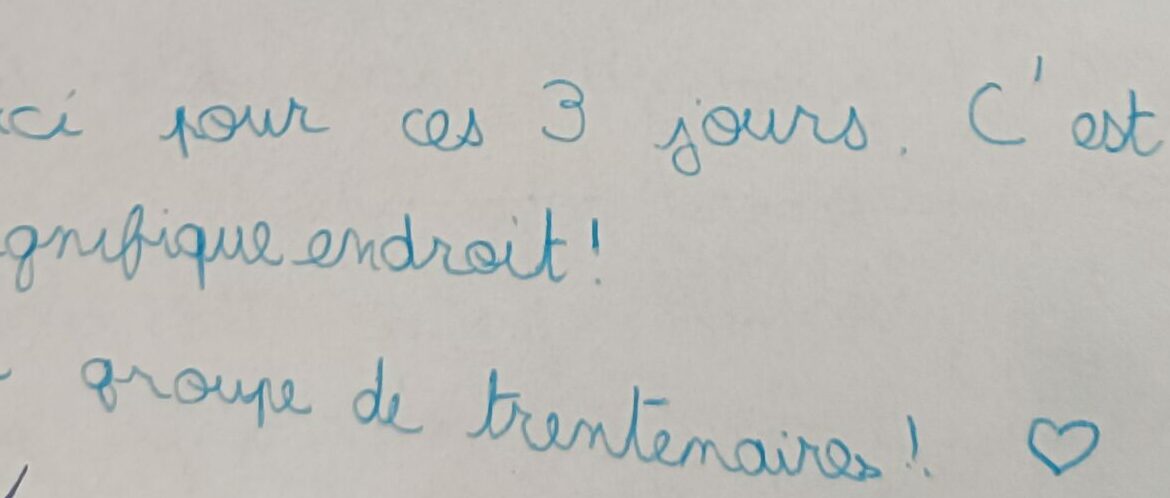 ci pour ces 3 jours. C'est
gnifique endroit!
groupe de trentenaires! ♡